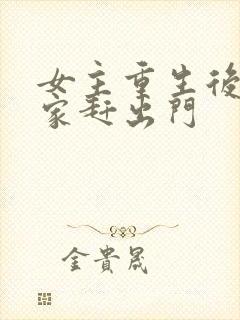 女主重生後
家趕出門
金貴晟